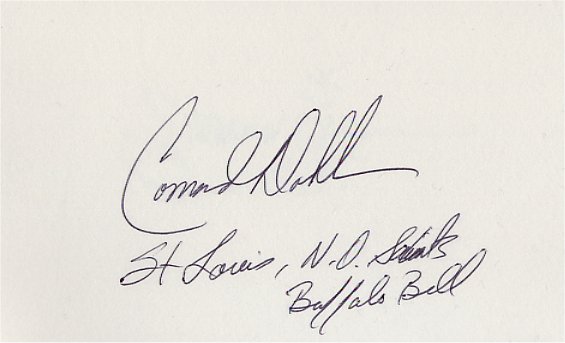 Conrad Dobler
St Louis, N.O. Saints
Buffalo Bill